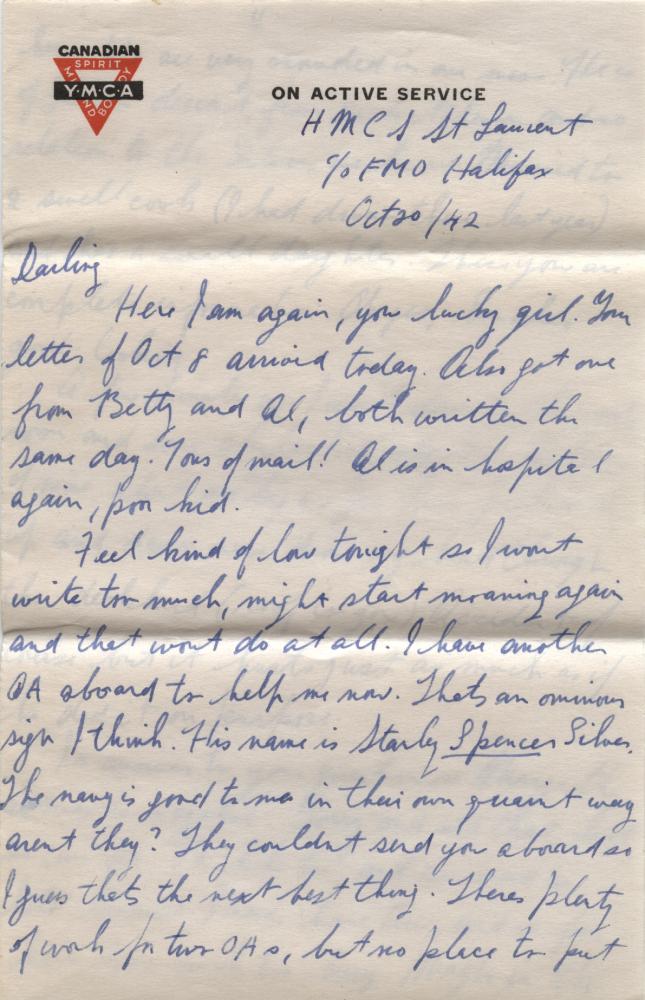 CANADIAN
SPIRIT
Y·M·C·A
MIND
BODY
ON ACTIVE SERVICE
HMCS St Laurent
c/o FMO Halifax
Oct 20/42
Darling
Here I am again, you lucky girl. Your
letter of Oct 8 arrived today. Also got one
from Betty and Al, both written the
same day. Tons of mail! Al is in hospital
again, poor kid.
Feel kind of low tonight so I wont
write too much, might start moaning again
and that wont do at all. I have another
OA aboard to help me now. Thats an ominous
sign I think. His name is Stanley Spencer Silver.
The navy is good to me in their own quaint way
arent they? They couldnt send you aboard so
I guess thats the next best thing. Theres plenty
of work for two OAs, but no place to put